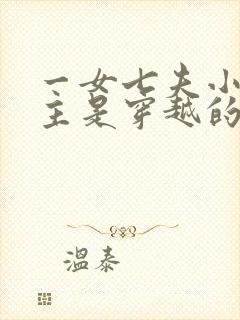 一女七夫小
主是穿越的
温泰